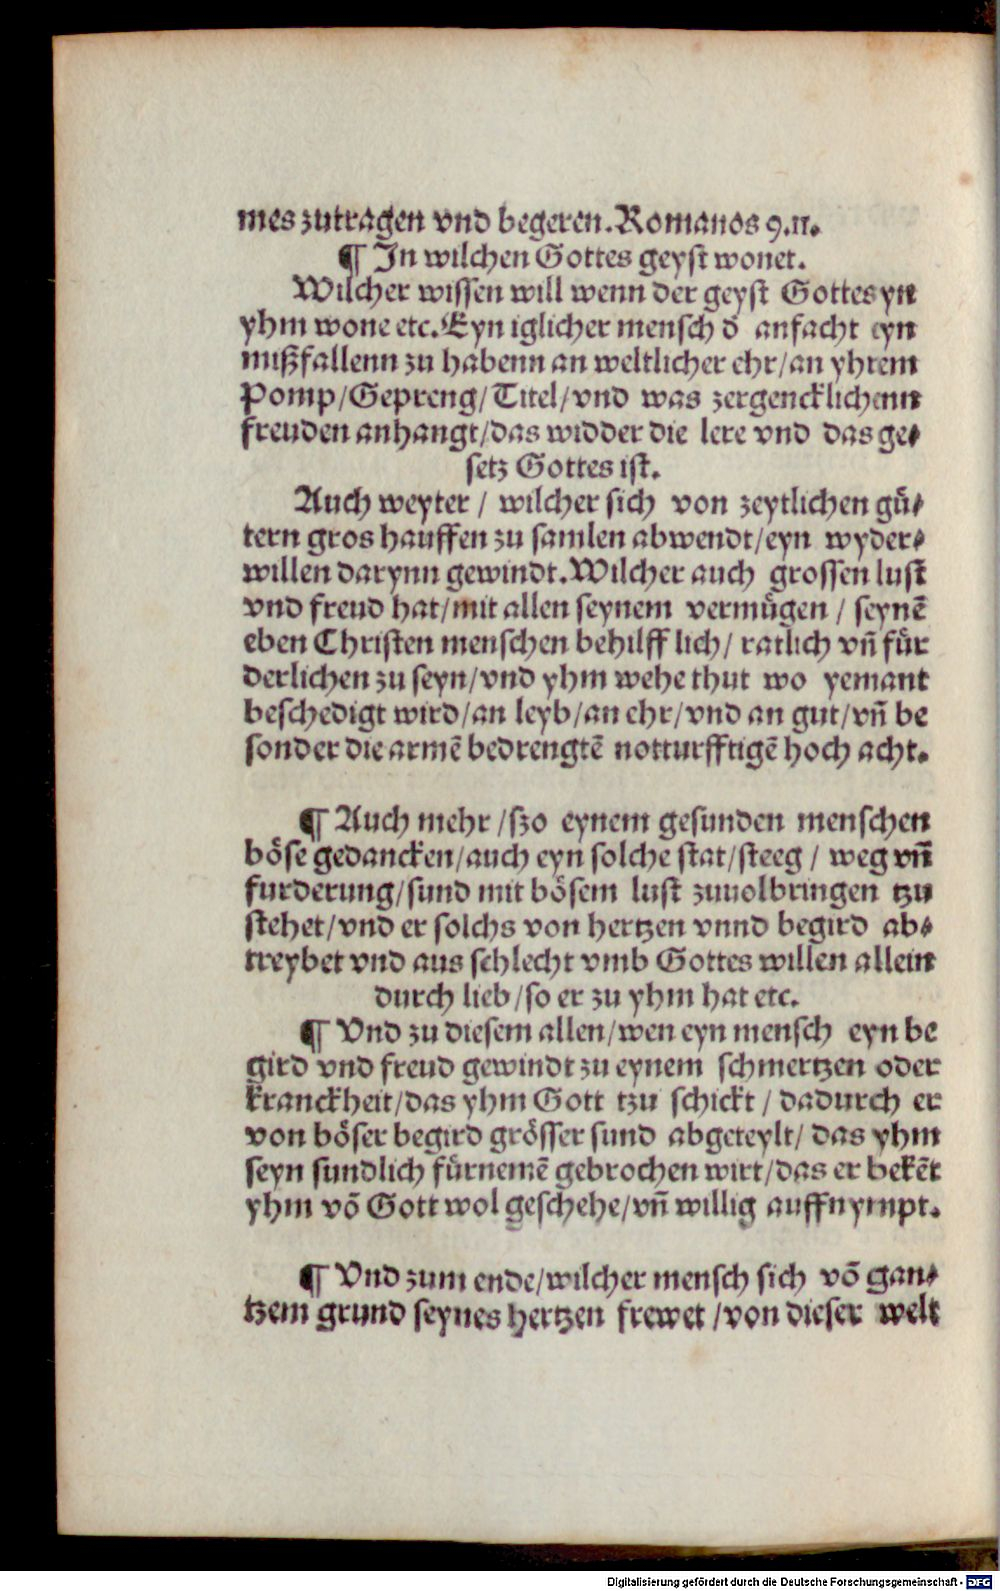 mes zutragen vnd begeren. Romanos 9.11.
¶ In wilchen Gottes geyst wonet.
Wilcher wissen will wenn der geyst Gottes yn
yhm wone etc. Eyn iglicher mensch d̄ anfacht eyn
mißfallenn zu habenn an weltlicher ehr/an yhrem
Pomp/Gepreng/Titel/vnd was zergencklichenn
freuden anhangt/das widder die lere vnd das ge⸗
setz Gottes ist.
Auch weyter / wilcher sich von zeytlichen guͤ⸗
tern gros hauffen zu samlen abwendt/eyn wyder⸗
willen darynn gewindt. Wilcher auch grossen lust
vnd freud hat/mit allen seynem vermuͤgen / seynē
eben Christen menschen behilff lich/ ratlich vn̄ fuͤr
derlichen zu seyn/vnd yhm wehe thut wo yemant
beschedigt wird/an leyb/an ehr/vnd an gut/vn̄ be
sonder die armē bedrengtē notturfftigē hoch acht.
¶ Auch mehr /szo eynem gesunden menschen
boͤse gedancken/auch eyn solche stat/steeg / weg vn̄
furderung/sund mit boͤsem lust zuuolbringen tzu
stehet/vnd er solchs von hertzen vnnd begird ab⸗
treybet vnd aus schlecht vmb Gottes willen allein
durch lieb/so er zu yhm hat etc.
¶ Vnd zu diesem allen/wen eyn mensch eyn be
gird vnd freud gewindt zu eynem schmertzen oder
kranckheit/das yhm Gott tzu schickt / dadurch er
von boͤser begird groͤsser sund abgeteylt/ das yhm
seyn sundlich fuͤrnemē gebrochen wirt/das er bekēt
yhm vō Gott wol geschehe/vn̄ willig auffnympt.
¶ Vnd zum ende/wilcher mensch sich vō gan⸗
tzem grund seynes hertzen frewet /von dieser welt
Digitalisierung gefördert durch die Deutsche Forschungsgemeinschaft - DFG